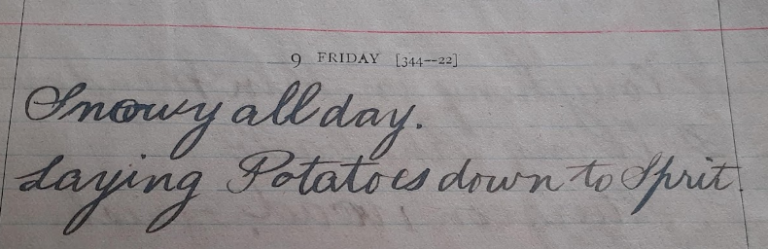 9 FRIDAY [344—22]
Snowy all day.
Laying Potatoes down to Sprit.